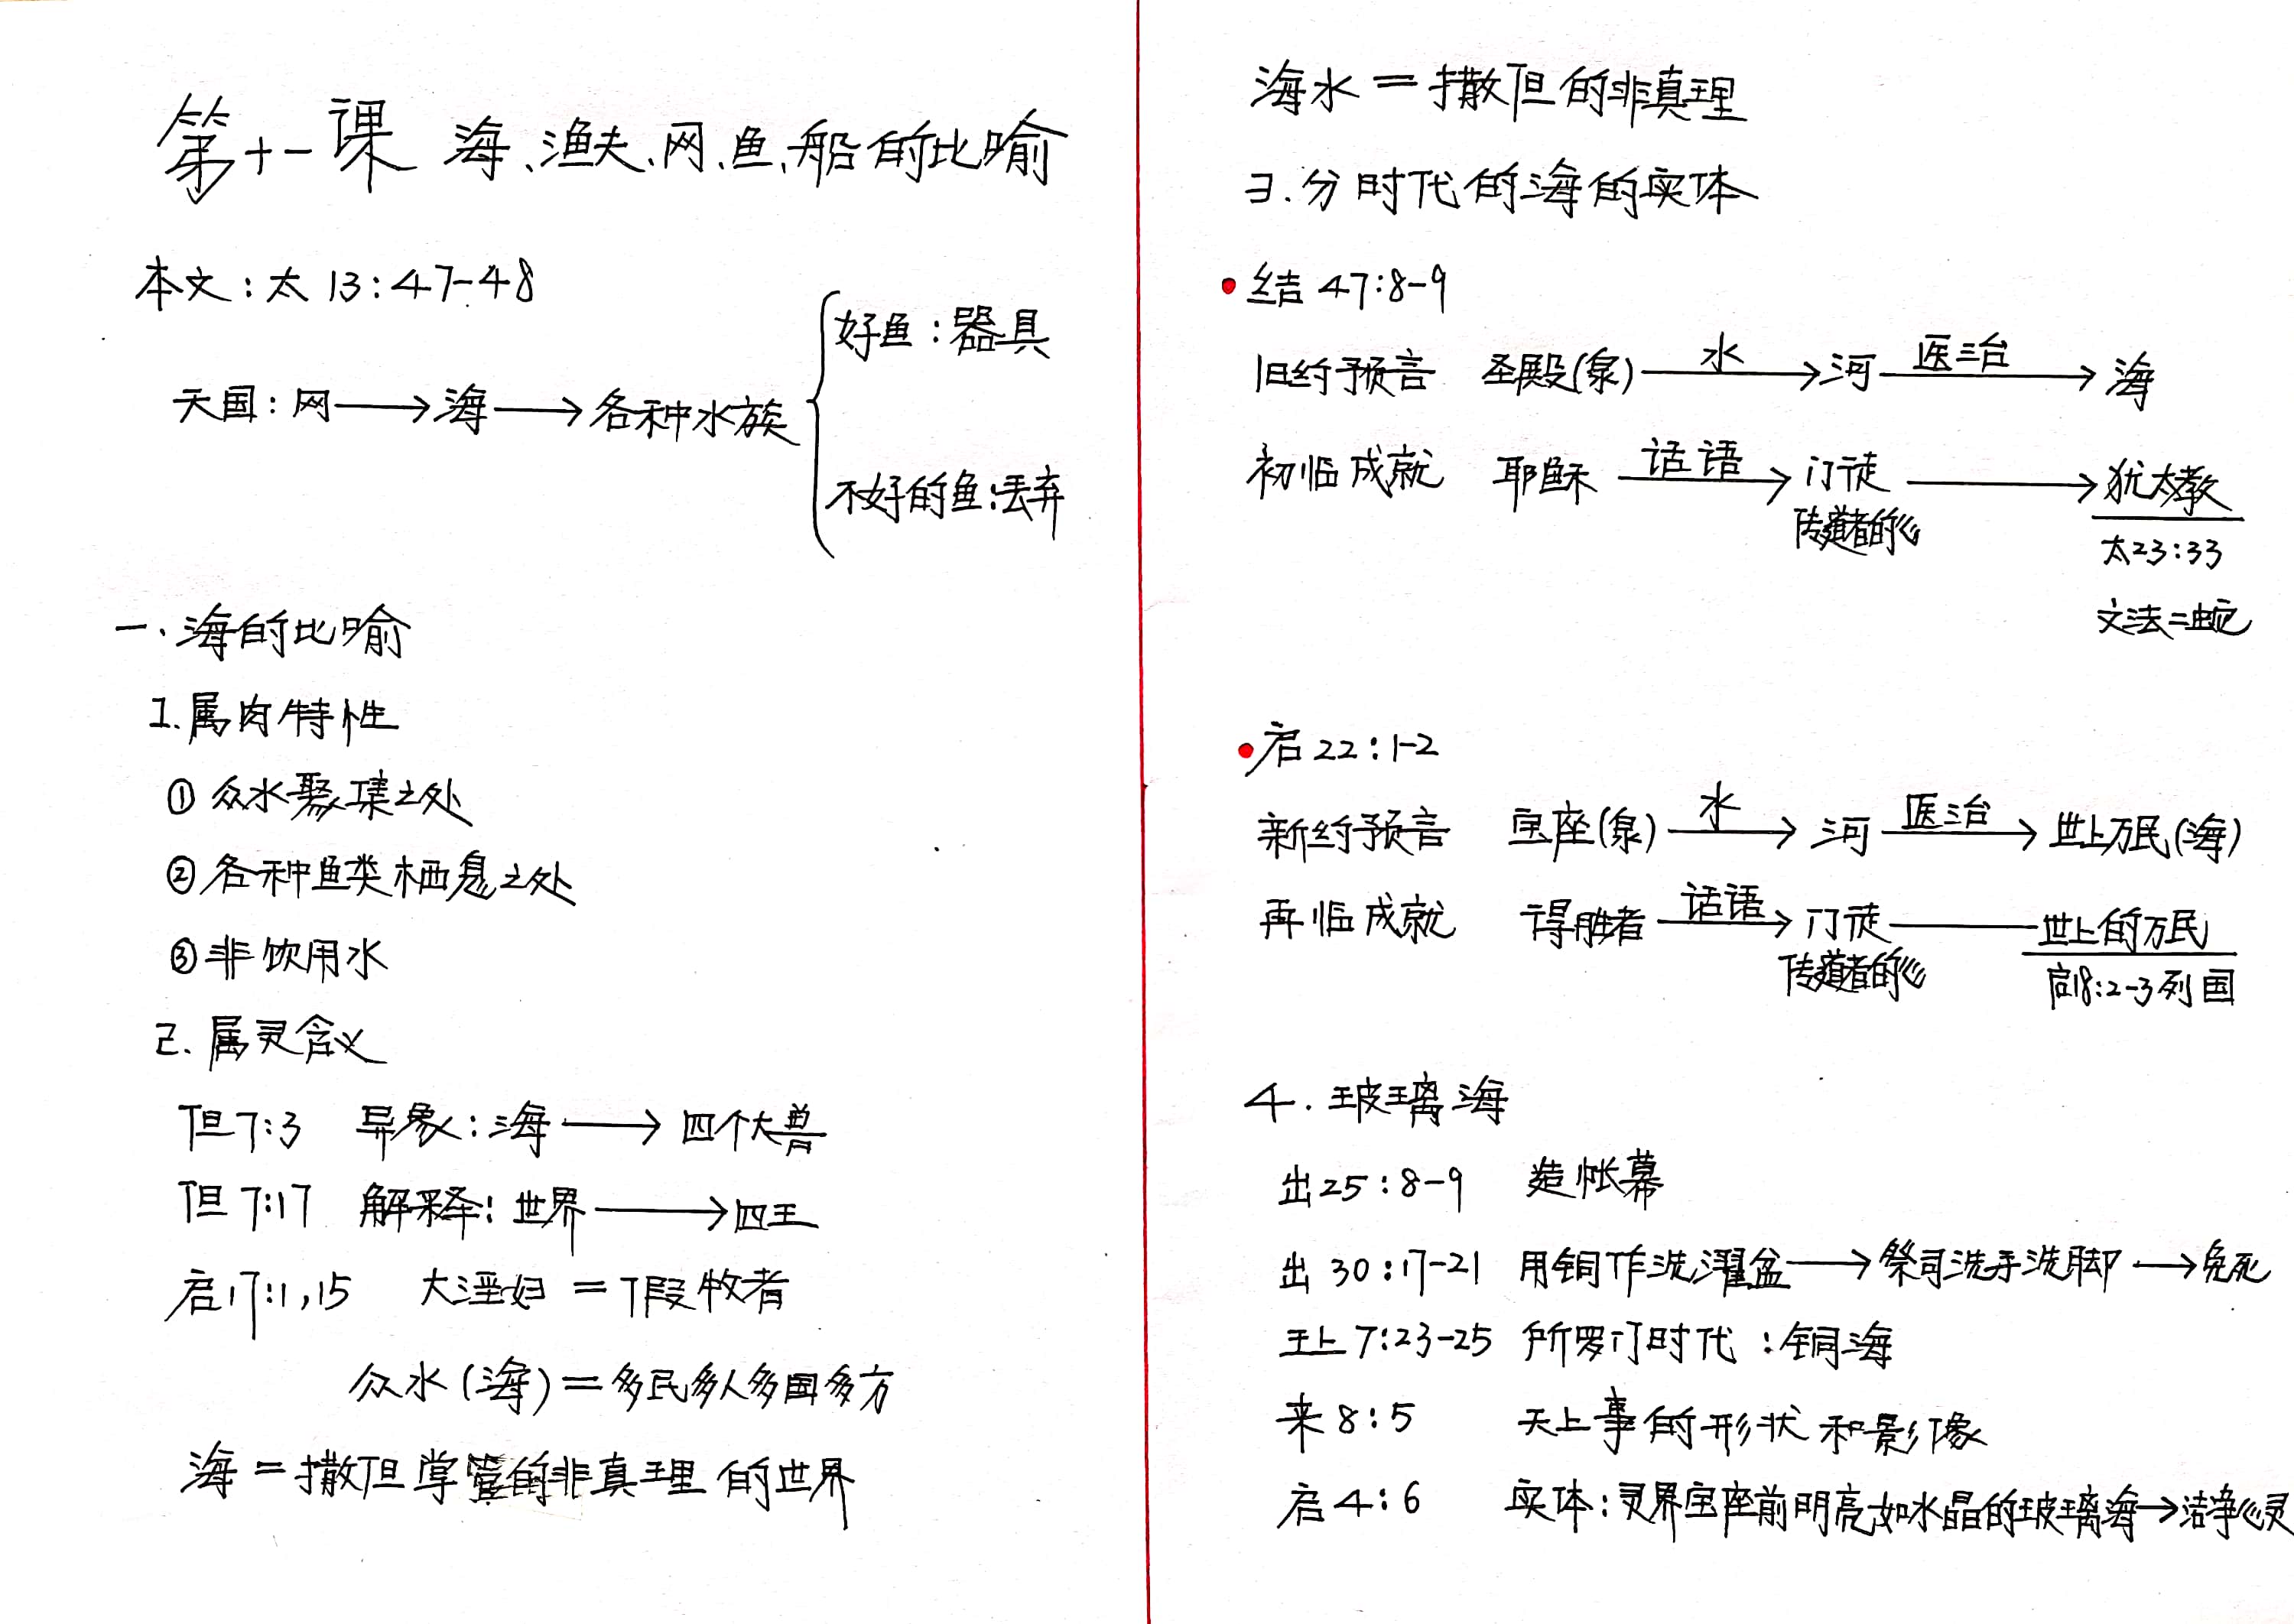 第十一课 海、渔夫、网、鱼、船的比喻
本文：太 13：47-48
天国：网→海→各种水族
好鱼：器具
不好的鱼：丢弃
一、海的比喻
1.属肉特性
①众水聚集之处
②各种鱼类栖息之处
③非饮用水
2.属灵含义
但7:3 异象：海→四个大兽
但7:17 解释：世界→四王
启17:1,15 大淫妇＝假牧者
众水(海)＝多民多人多国多方
海＝撒但掌管的非真理的世界
海水＝撒但的非真理
3.分时代的海的实体
•结 47:8-9
旧约预言 圣殿(泉) 水→河 医治→海
初临成就 耶稣 话语→门徒→犹太教
传道者的心
太23:33
文法=蛇
•启22:1-2
新约预言 宝座(泉) 水→河 医治→世上万民(海)
再临成就 得胜者 话语→门徒—世上的万民
传道者的心
启18:2-3列国
4.玻璃海
出25:8-9 造帐幕
出30:17-21 用铜作洗濯盆→祭司洗手洗脚→免死
王上7:23-25 所罗门时代：铜海
来8:5 天上事的形状和影像
启4:6 实体：灵界宝座前明亮如水晶的玻璃海→洁净心灵